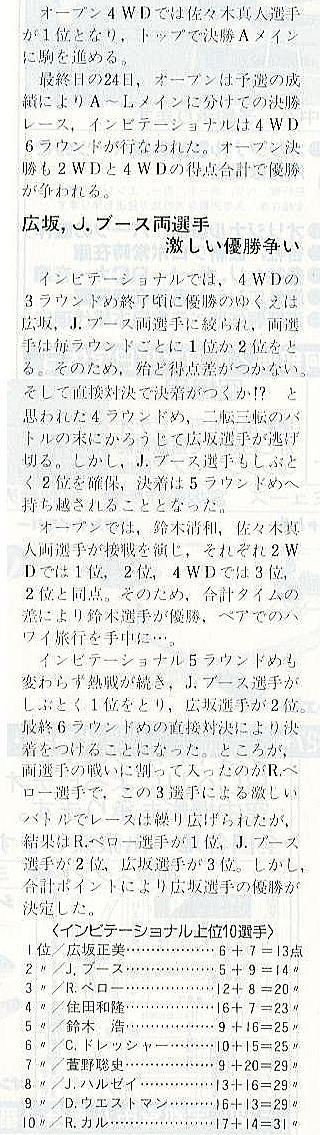 オープン4WDでは佐々木真人選手
が1位となり，トップで決勝Aメイン
に駒を進める。
最終日の24日，オープンは予選の成
績によりA〜Lメインに分けての決勝
レース，インビテーショナルは4WD
6ラウンドが行なわれた。オープン決
勝も2WDと4WDの得点合計で優勝
が争われる。
広坂，J.ブース両選手
激しい優勝争い
インビテーショナルでは，4WDの
3ラウンドめ終了頃に優勝のゆくえは
広坂，J.ブース両選手に絞られ，両選
手は毎ラウンドごとに1位か2位をと
る。そのため，殆ど得点差がつかない。
そして直接対決で決着がつくか!?　と
思われた4ラウンドめ，二転三転のバ
トルの末にかろうじて広坂選手が逃げ
切る。しかし，J.ブース選手もしぶと
く2位を確保，決着は5ラウンドめへ
持ち越されることとなった。
オープンでは，鈴木清和，佐々木真
人両選手が接戦を演じ，それぞれ2W
Dでは1位，2位，4WDでは3位，
2位と同点。そのため，合計タイムの
差により鈴木選手が優勝，ペアでのハ
ワイ旅行を手中に…。
インビテーショナル5ラウンドめも
変わらず熱戦が続き，J.ブース選手が
しぶとく1位をとり，広坂選手が2位。
最終6ラウンドめの直接対決により決
着をつけることになった。ところが，
両選手の戦いに割って入ったのがR.ベ
ロー選手で，この3選手による激しい
バトルでレースは繰り広げられたが，
結果はR.ベロー選手が1位，J.ブース
選手が2位，広坂選手が3位。しかし，
合計ポイントにより広坂選手の優勝が
決定した。
〈インビテーショナル上位10選手〉
1位／広坂正美………………6＋7＝13点
2〃／J.ブース………………5＋9＝14〃
3〃／R.ベロー………………12＋8＝20〃
4〃／住田和隆………………16＋7＝23〃
5〃／鈴木　浩………………9＋16＝25〃
6〃／C.ドレッシャー………10＋15＝25〃
7〃／菅野聡史………………9＋20＝29〃
8〃／J.ハルゼイ……………13＋16＝29〃
9〃／D.ウエストマン………16＋13＝29〃
10〃／R.カル…………………17＋14＝31〃